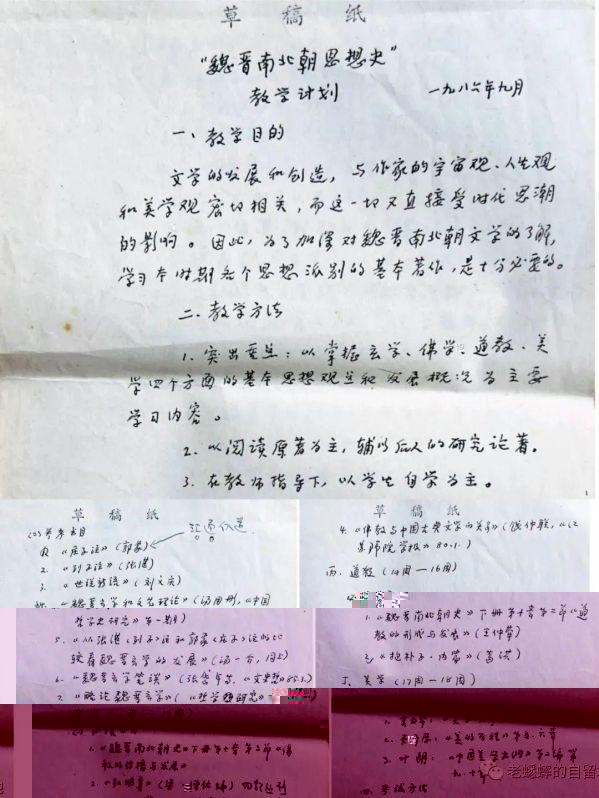 草稿纸
“魏晋南北朝思想史”
教学计划 一九八六年九月
一、教学目的
文学的发展和创造，与作家的宇宙观、人生观
和美学观密切相关，而这一切又直接受时代思潮
的影响。因此，为了加深对魏晋南北朝文学的了解，
学习本时期各个思想派别的基本著作，是十分必要的。
二、教学方法
1. 突出重点：以掌握玄学、佛学、道教、美
学四个方面的基本思想观点和发展概况为主要
学习内容。
2. 以阅读原著为主，辅以后人的研究论著。
3. 在教师指导下，以学生自学为主。
草稿纸
参考书目
《庄子注》（郭象）
2. 《列子注》（张湛）
3. 《世说新语》（刘义庆）
《魏晋玄学和文学理论》（汤用彤，《中国
哲学史研究》第一期）
5. 《从张湛《列子》注和郭象《庄子》注的比
较看魏晋玄学的发展》（汤一介，同上）
6. 《魏晋玄学笔谈》（张岱年等，《文史哲》85.3.）
7. 《略论魏晋玄学》（《哲学研究》
1. 《魏晋南北朝史》下册第十章第三节《佛
教的传播与发展》
2. 《弘明集》（梁 僧佑编）四部丛刊
草稿纸
4. 《佛教与中国古典文学的关系》（钱仲联，《江
苏师院学报》80.1.）
丙、道教（14周—16周）
1. 《魏晋南北朝史》下册第十章第二节《道
教的形成与发展》（王仲荦）
2. 《抱朴子·内篇》（葛洪）
丁、美学（17周—18周）
《美的历程》第五、六章
3. 叶朗：《中国美学史大纲》第二编第
四、考试方法
老蟋蟀的自留